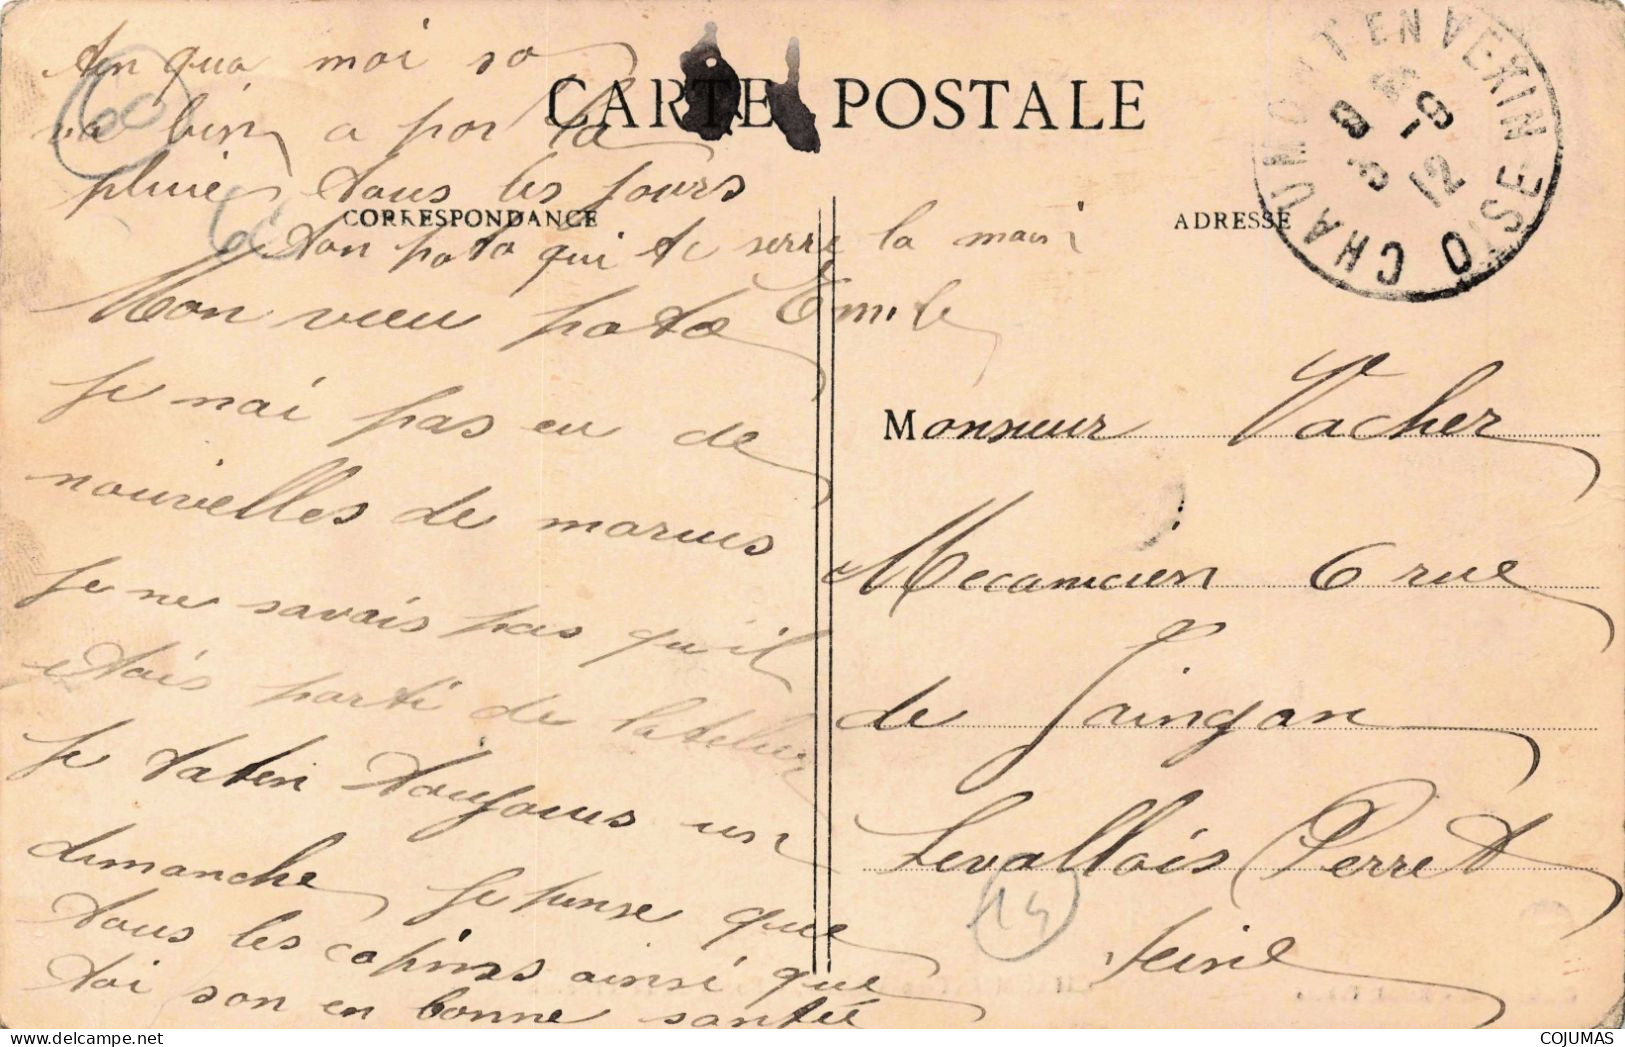 CARTE POSTALE
CORRESPONDANCE
ADRESSE
CHAUMONT EN VEXIN
OISE
8 -9
12
Mon vieu poto
Je nai pas eu de
nouvelles de marius
Je ne savais pas qu'il
etais parti de latelier
Je taten toujours un
dimanche Je pense que
tous les copins ainsi que
toi son en bonne santée
An qua moi sa
va bin a par la
pluie tous les jours
ton poto qui te serre la main
Emile
Monsieur Vacher
Mecanicien 6 rue
de
Levallois Perret
Seine
60
60
14
COJUMAS